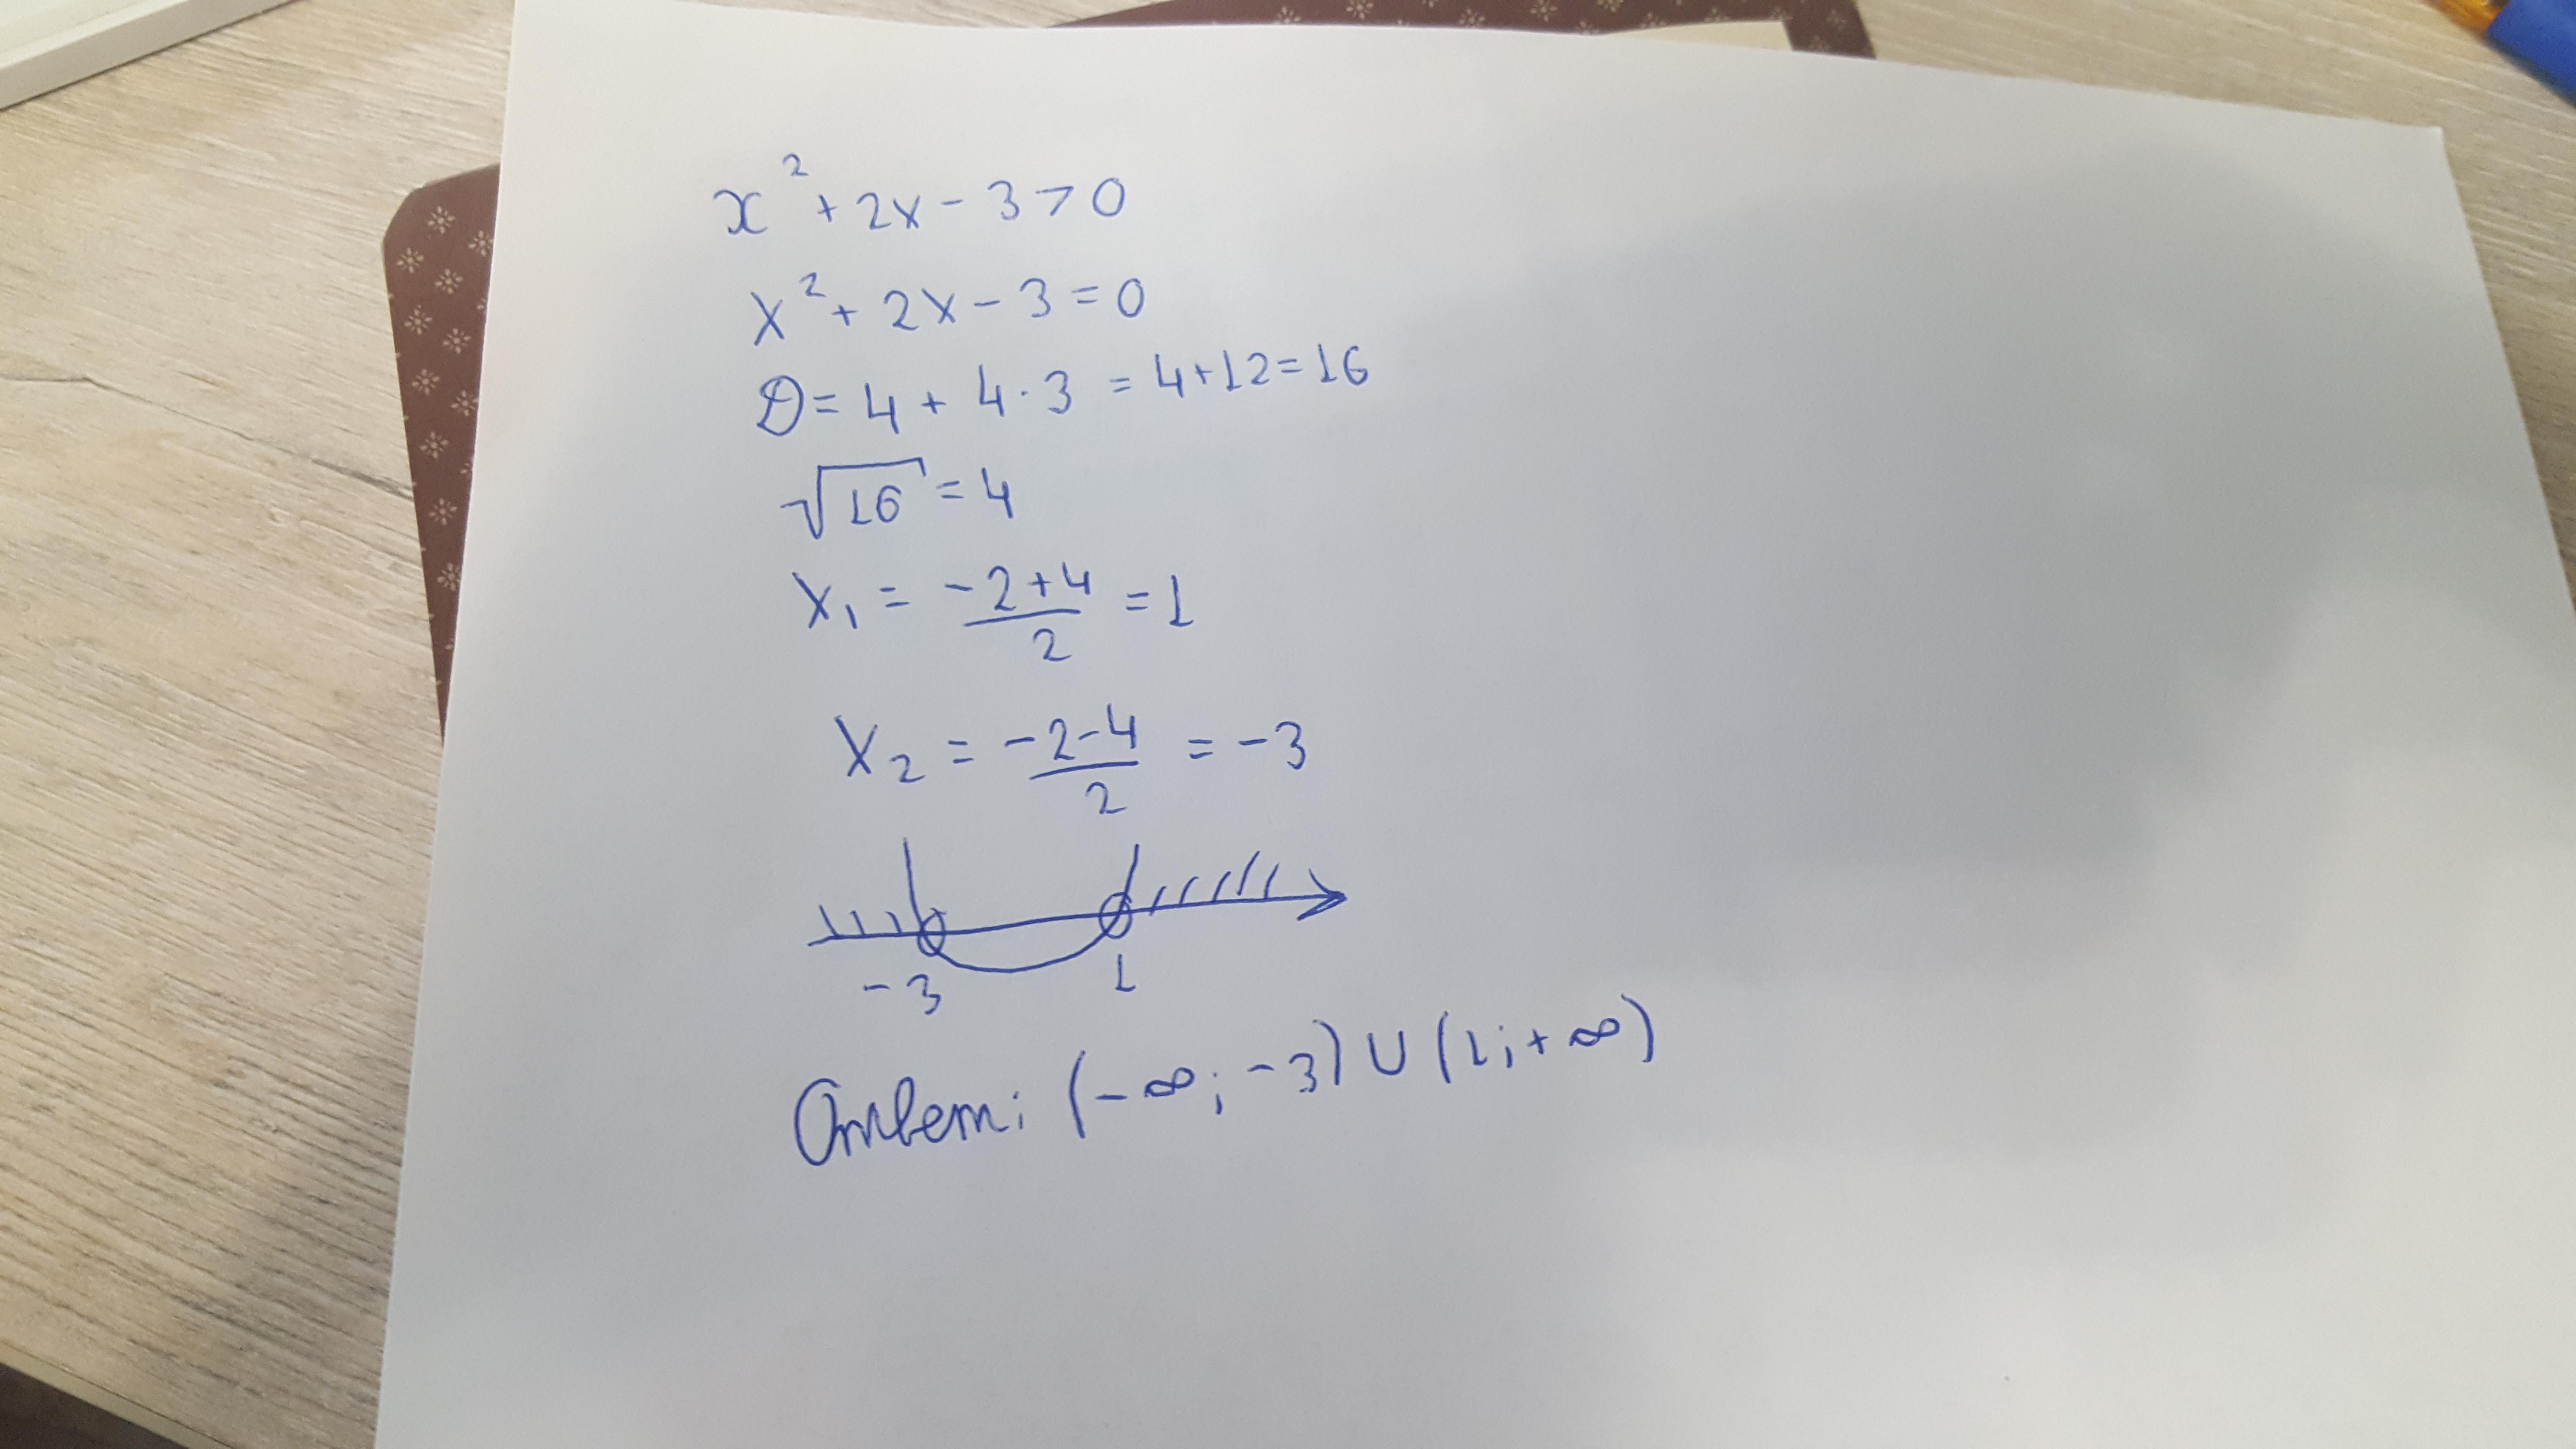 x² + 2x - 3 > 0
x² + 2x - 3 = 0
D = 4 + 4 · 3 = 4 + 12 = 16
√16 = 4
x₁ = (-2+4)/2 = 1
x₂ = (-2-4)/2 = -3
-3 1
Ответ: (-∞; -3) ∪ (1; +∞)